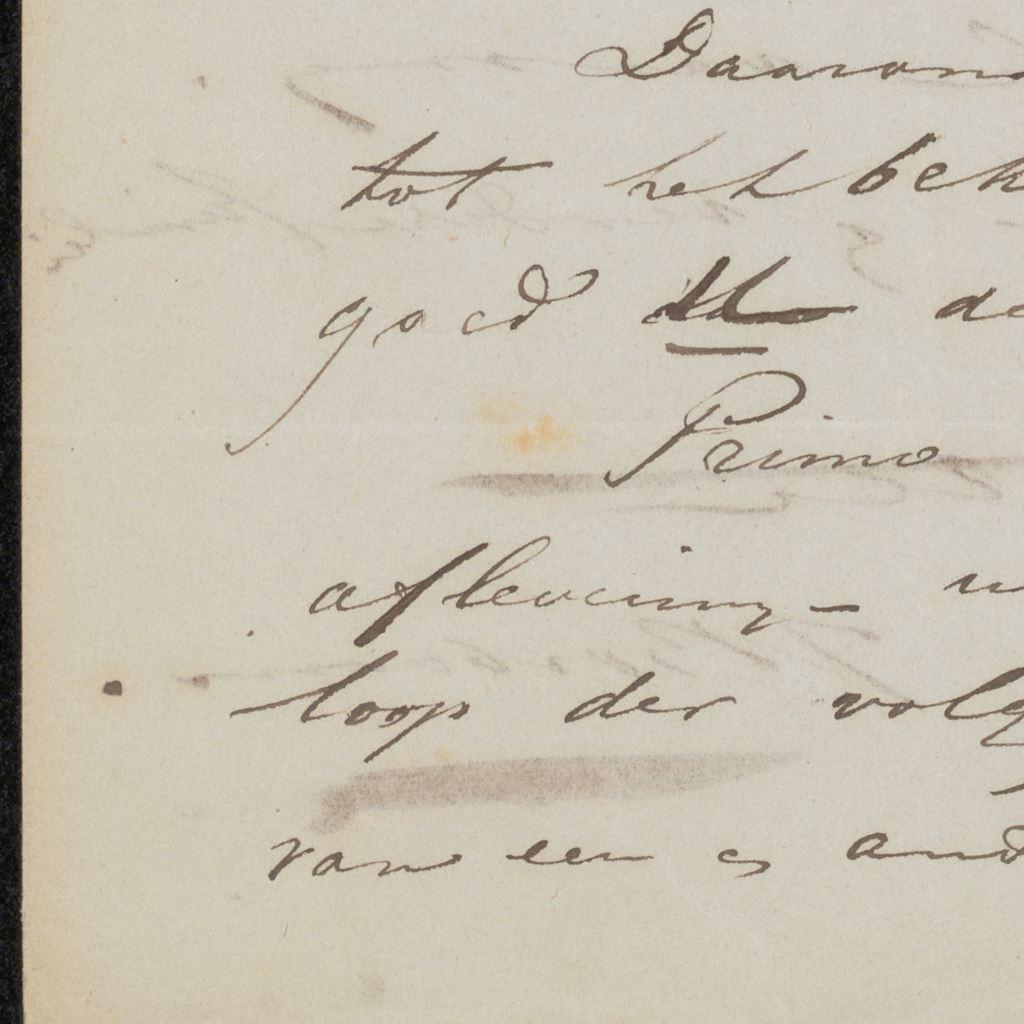 Daarom
tot het bek
goed de
Primo
aflevering –
loop der volg
van een & and